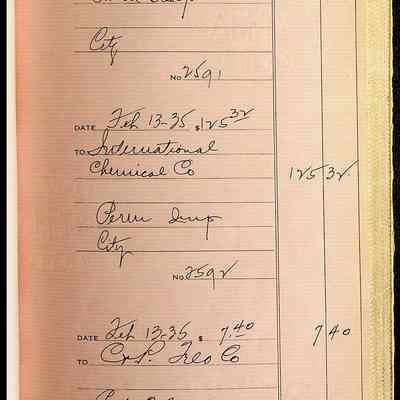 City
No 2591
DATE Feb 13-35 $125 32
TO International
Chemical Co 125 32
Perm Imp
City
No. 2592
DATE Feb 13-35 $ 7.40 7 40
TO Co